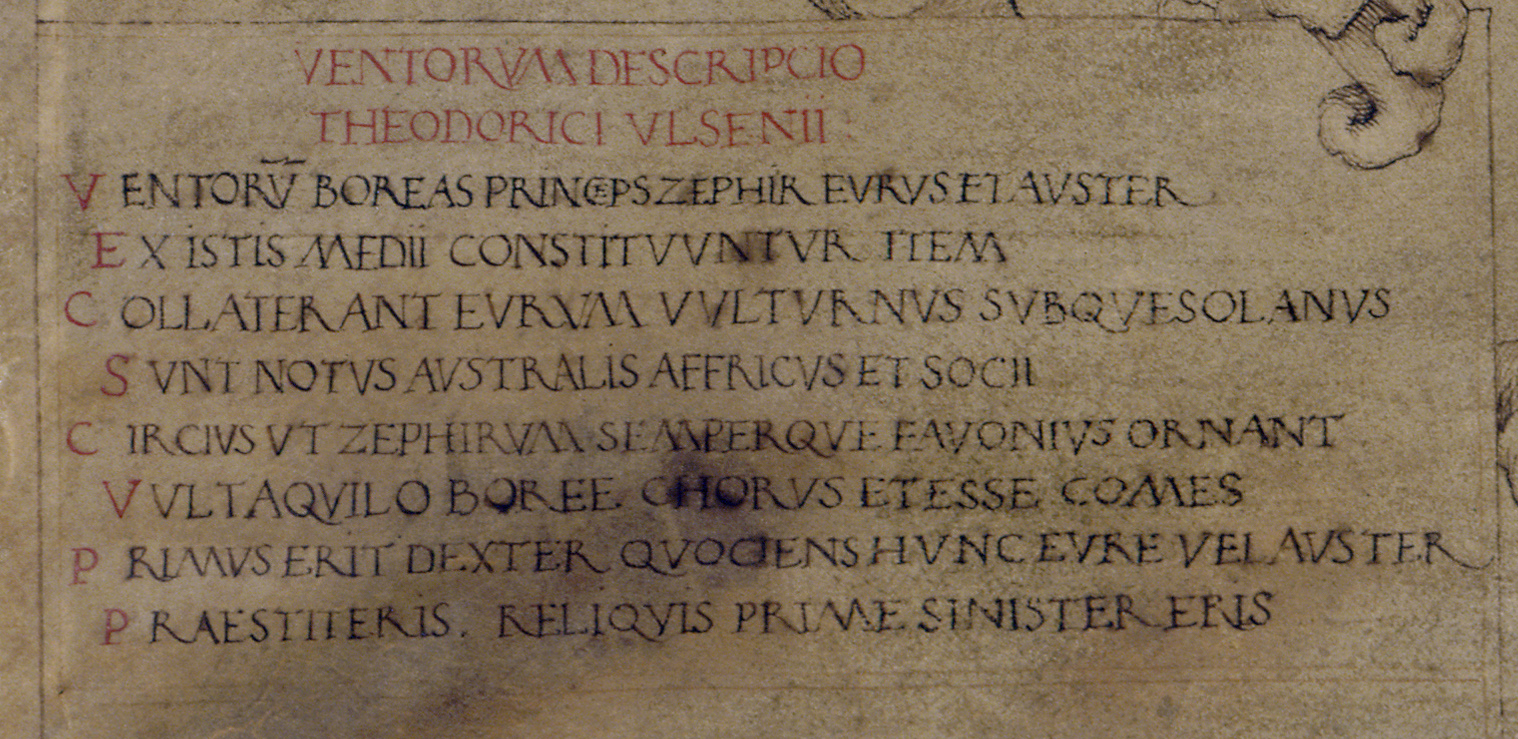 VENTORVM DESCRIPCIO
THEODORICI VLSENII :
VENTORV̄ BOREAS PRINCEPS ZEPHIR EVRVS ET AVSTER
EX ISTIS MEDII CONSTITVVNTVR ITEM
COLLATERANT EVRVM VVLTVRNVS SVBQVESOLANVS
SVNT NOTVS AVSTRALIS AFFRICVS ET SOCII
CIRCIVS VT ZEPHIRVM SEMPERQVE FAVONIVS ORNANT
VVLT AQVILO BOREE CHORVS ET ESSE COMES
PRIMVS ERIT DEXTER QVOCIENS HVNC EVRE VEL AVSTER
PRAESTITERIS. RELIQVIS PRIME SINISTER ERIS